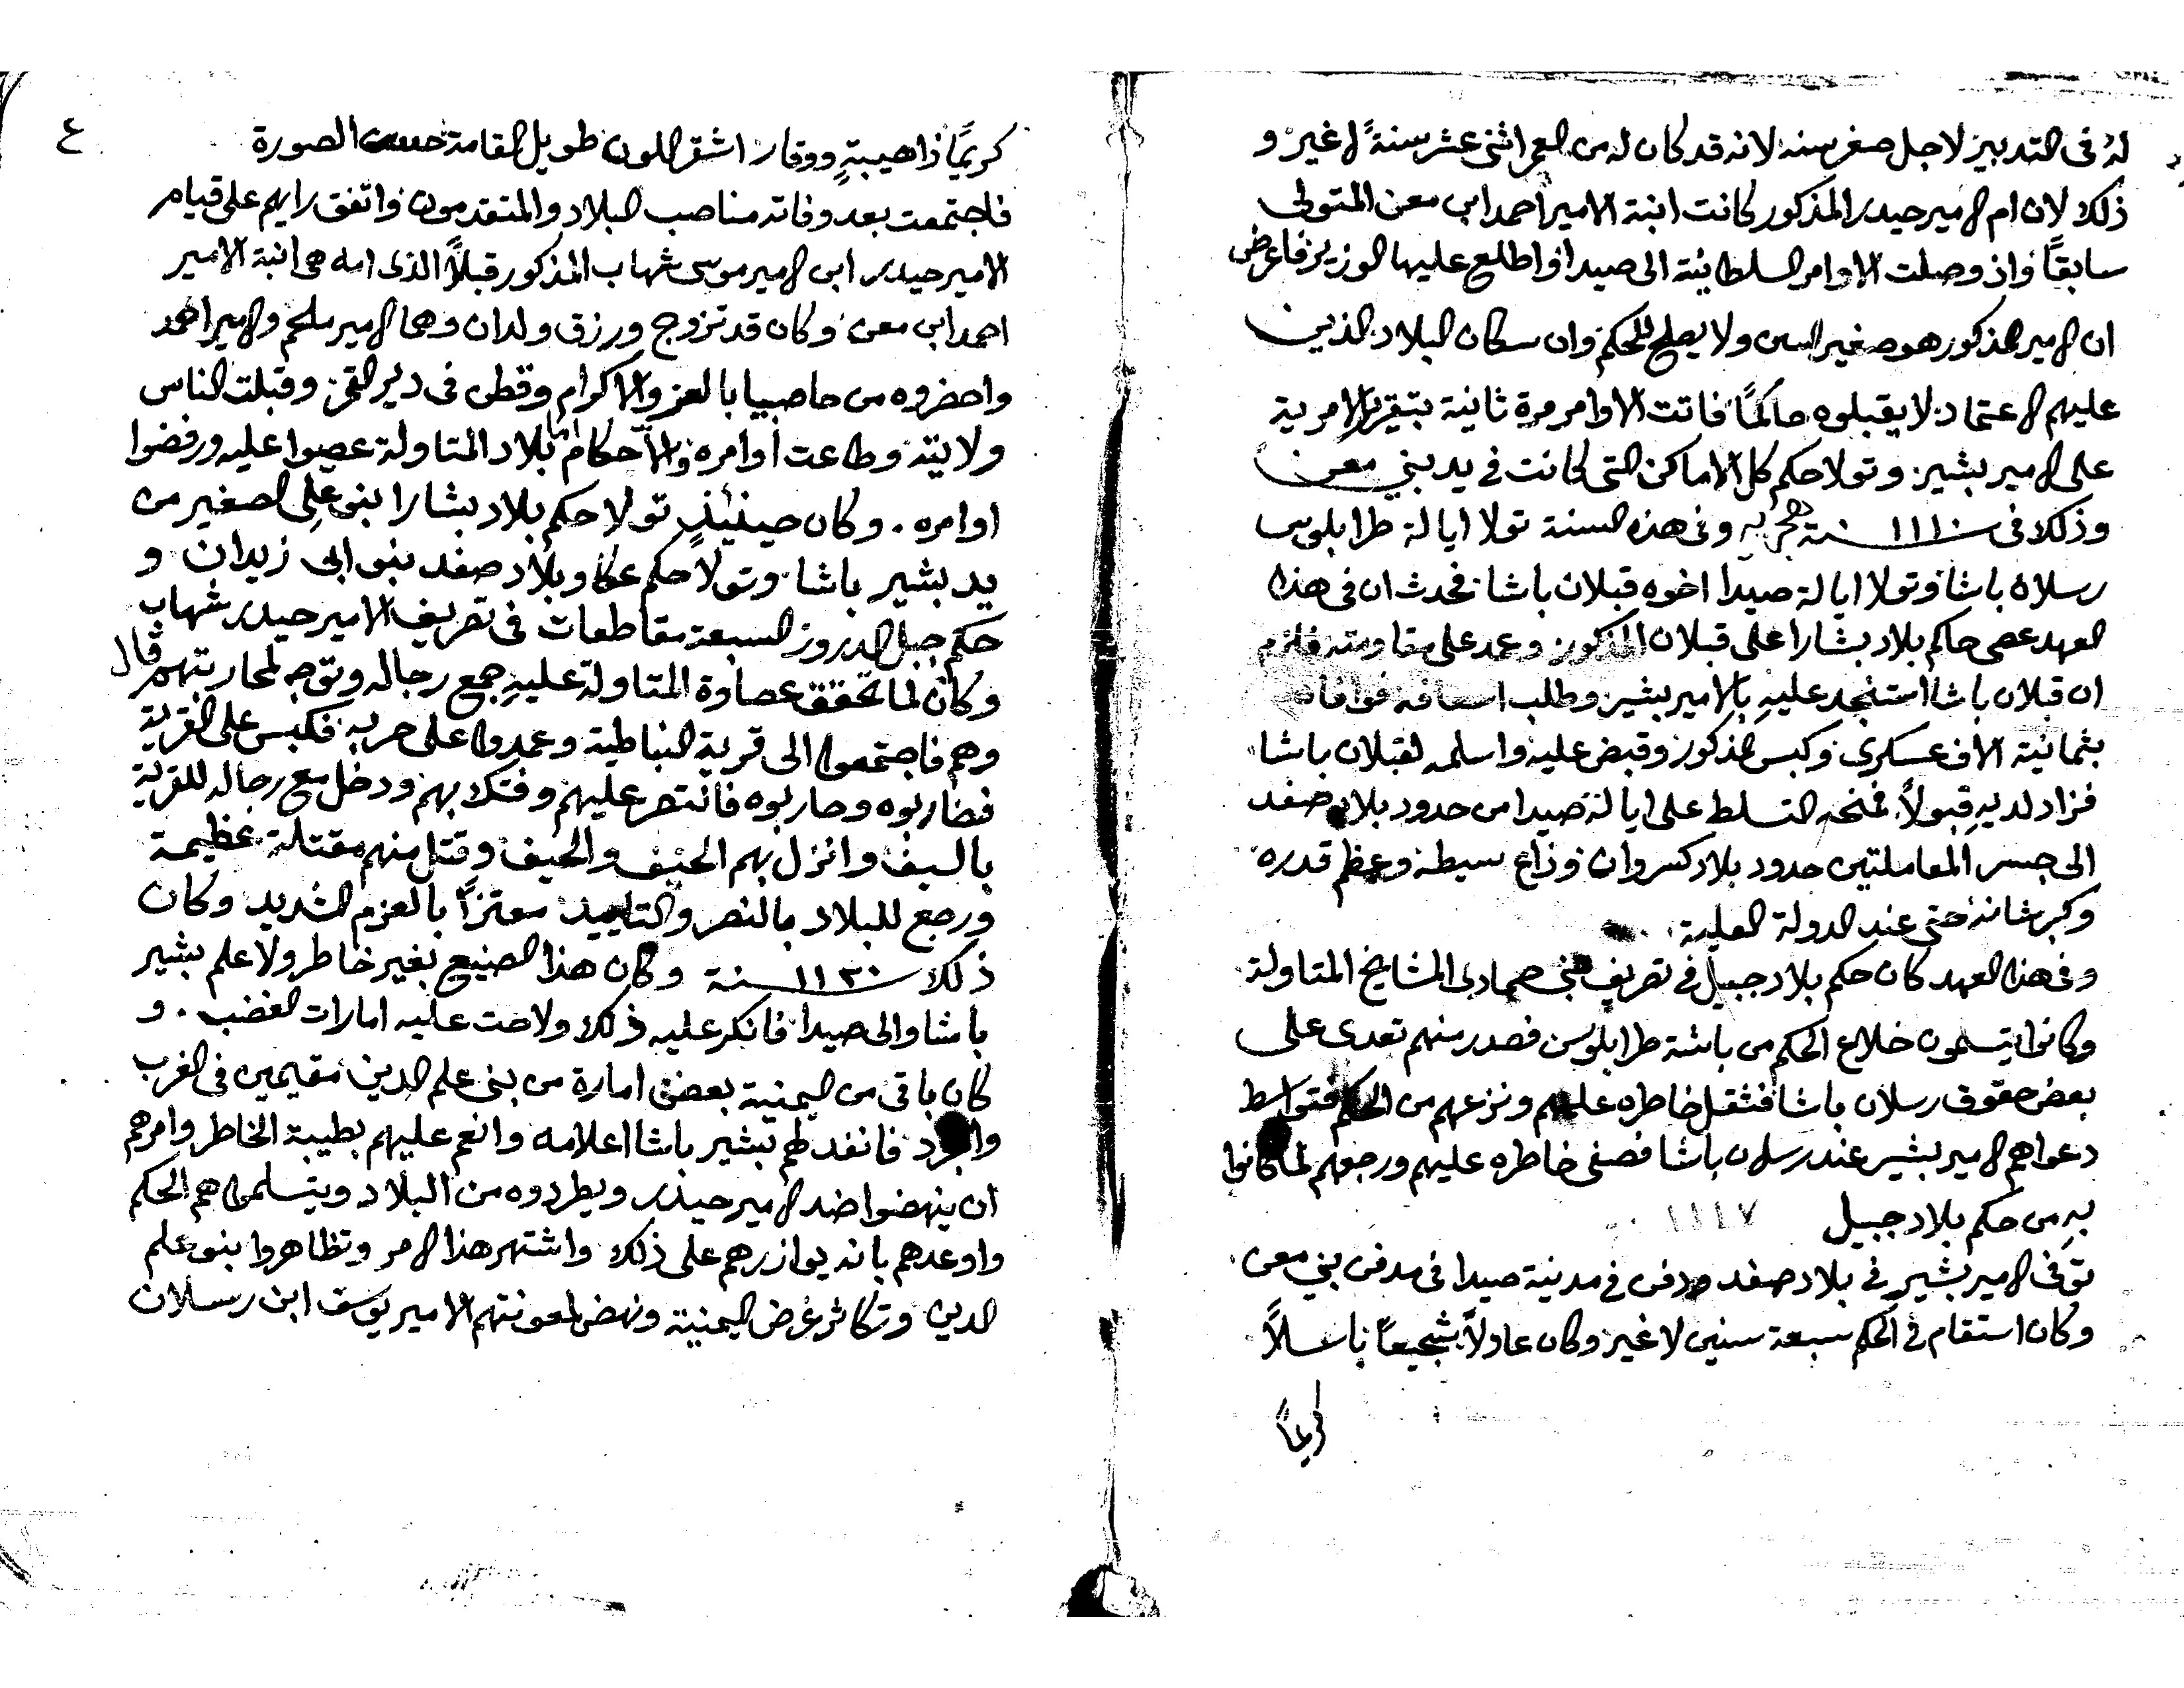 لهُ فى التدبير لاجل صغر سنه لانه قد كان له من العمر اثنى عشر سنةً لا غير و
ذلك لان ام الامير حيدر المذكور كانت ابنة الامير احمد ابن معن المتولى
سابقاً واذ وصلت الاوامر السلطانية الى صيدا واطلع عليها الوزير فاعرض
ان الامير المذكور هو صغير السن ولا يصلح للحكم وان سكان البلاد الذين
عليهم الاعتماد لا يقبلوه حاكماً فاتت الاوامر مرة ثانية بتقرير الامرية
على الامير بشير وتولا حكم كل الاماكن التى كانت في يد بني معن
وذلك فى سنة ١١١٠ هجريه وفى هذه السنة تولا ايالة طرابلوس
رسلان باشا وتولا ايالة صيدا اخوه قبلان باشا فحدث ان فى هذا
العهد عصى حاكم بلاد بشارا على قبلان المذكور وعمد على مقاومته فلزم
ان قبلان باشا استنجد عليهِ بالامير بشير وطلب اسعافه فوافاه
بثمانية الاف عسكرى وكبس المذكور وقبض عليه واسلمه لقبلان باشا
فزاد لديهِ قبولاً فمنحه التسلط على ايالة صيدا من حدود بلاد صفد
الى جسر المعاملتين حدود بلاد كسروان وذاع سيطه وعظم قدره
وكبر شانه حتى عند الدولة العلية
وفى هذا العهد كان حكم بلاد جبيل في تصريف بنى حمادى المشايخ المتاولة
وكانوا يتسلمون خلاع الحكم من باشة طرابلوس فصدر منهم تعدى على
بعض حقوق رسلان باشا فثقل خاطره عليهم ونزعهم من الحكم فتواسط
دعواهم الامير بشير عند رسلان باشا فصفى خاطره عليهم ورجعهم لما كانوا
بهِ من حكم بلاد جبيل ١١١٧
توفى الامير بشير في بلاد صفد ودفن في مدينة صيدا فى مدفن بني معن
وكان استقام في الحكم سبعة سنين لا غير وكان عادلاً شجيعاً باسلاً
كريماً
٤
كريماً ذا هيبةٍ ووقار اشقر اللون طويل القامة حسن الصورة
فاجتمعت بعد وفاته مناصب البلاد والمتقدمون واتفق رايهم على قيام
الامير حيدر ابن الامير موسى شهاب المذكور قبلاً الذى امه هى ابنة الامير
احمد ابن معن وكان قد تزوج ورزق ولدان وهما الامير ملحم والامير احمد
واحضروه من حاصبيا بالعز والاكرام وقطن فى دير القمر وقبلت الناس
ولايته وطاعت اوامره والاحكام اما بلاد المتاولة عصيوا عليه ورفضوا
اوامره . وكان حينئذٍ تولا حكم بلاد بشارا بنى على الصغير من
يد بشير باشا وتولا حكم عكا وبلاد صفد بنو ابى زيدان و
حكم جبل الدروز السبعة مقاطعات فى تصريف الامير حيدر شهاب
وكان لما تحقق عصاوة المتاولة عليهِ جمع رجاله وتوجه لمحاربتهم قال
وهم فاجتمعوا الى قرية النباطية وعمدوا على حربه فكبس على القرية
فضاربوه وحاربوه فانتصر عليهم وفتك بهم ودخل مع رجاله للقرية
بالسيف وانزل بهم الحنيف والحيف وقتل منهم مقتلة عظيمة
ورجع للبلاد بالنصر والتاييد معتزاً بالعزم الشديد وكان
ذلك سنة ١١٢٠ وكان هذا الصنيع بغير خاطر ولا علم بشير
باشا والى صيدا فانكر عليه ذلك ولاحت عليه امارات الغضب . و
كان باقى من اليمنية بعض امارة من بنى علم الدين مقيمين فى الغرب
والجرد فانفد لهم بشير باشا اعلامه وانعم عليهم بطيبة الخاطر وامرهم
ان ينهضوا ضد الامير حيدر ويطردوه من البلاد ويتسلموا هم الحكم
واوعدهم بانه يوازرهم على ذلك واشتهر هذا الامر وتظاهروا بنو علم
الدين وتكاثر غرض اليمنية ونهض لمعونتهم الامير يوسف ابن رسلان